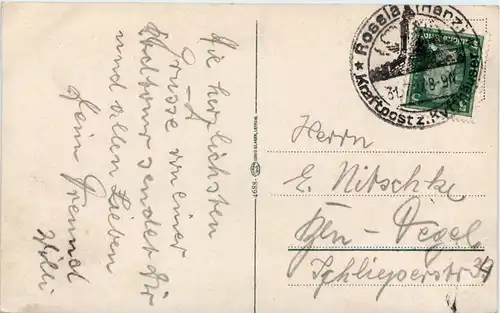 Die herzlichsten
Grüsse von einer
Radtour sendet Dir
und allen Lieben
Dein Freund
Willi
4688
Rossla (Harz)
31. 8-9N
Kraftpost z. Kyffhäuser
Herrn
E. Nitschke
Bln-Tegel
Schlieperstr 34